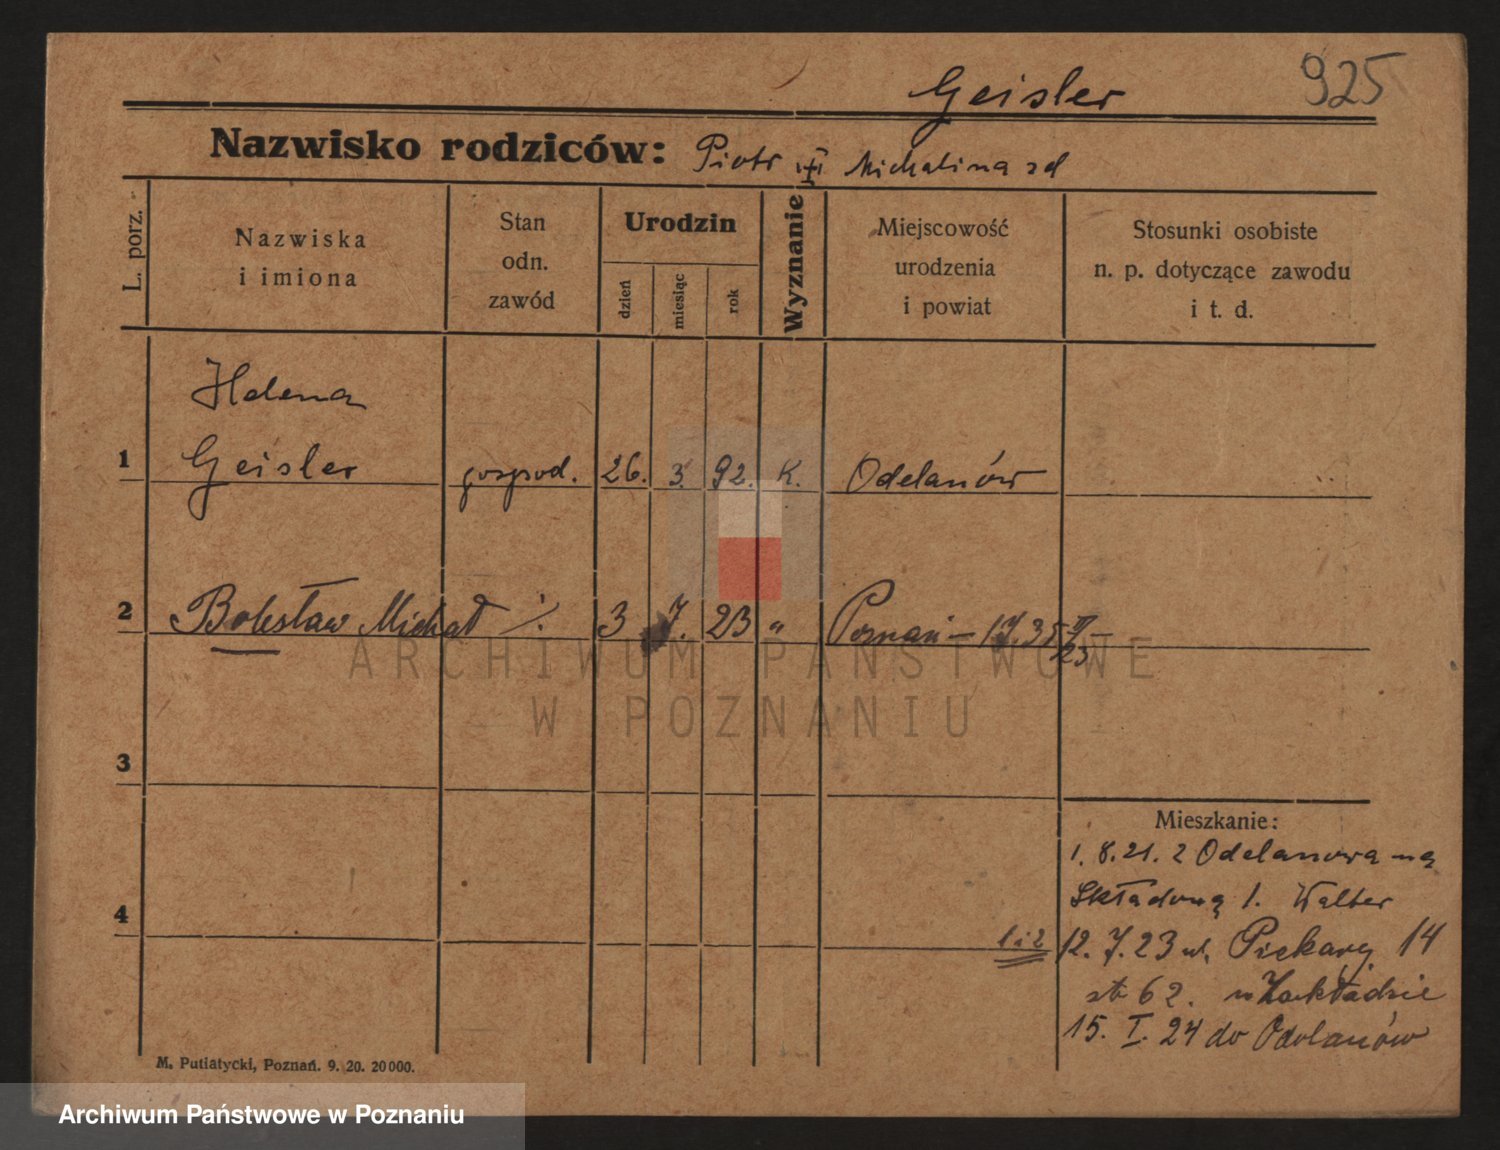 Geisler
925
Nazwisko rodziców: Piotr Michalina zd
L. porz.
Nazwiska
i imiona
Stan
odn.
zawód
Urodzin
dzień
miesiąc
rok
Wyznanie
Miejscowość
urodzenia
i powiat
Stosunki osobiste
n. p. dotyczące zawodu
i t. d.
Helena
1 Geisler gospod. 26. 3. 92. K. Odelanów
2 Bolesław Michał ·/. 3 7. 23 " Poznań
ARCHIWUM PAŃSTWOWE
W POZNANIU
3
Mieszkanie:
1. 8. 21. z Odelanowa na
Składową 1. Walter
4
1 i 2 12. 7. 23 ul. Piekary 14
62. w Zakładzie
15. I. 24 do Odolanów
M. Putiatycki, Poznań. 9. 20. 20000.
Archiwum Państwowe w Poznaniu